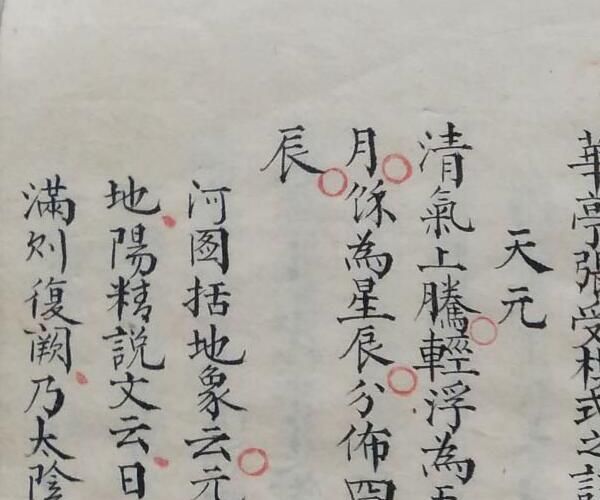 華亭張受祺式之
天元
清氣上騰輕浮為
月餘為星辰分佈四
辰
河图括地象云元
地陽精説文云日
滿则復阙乃太陰